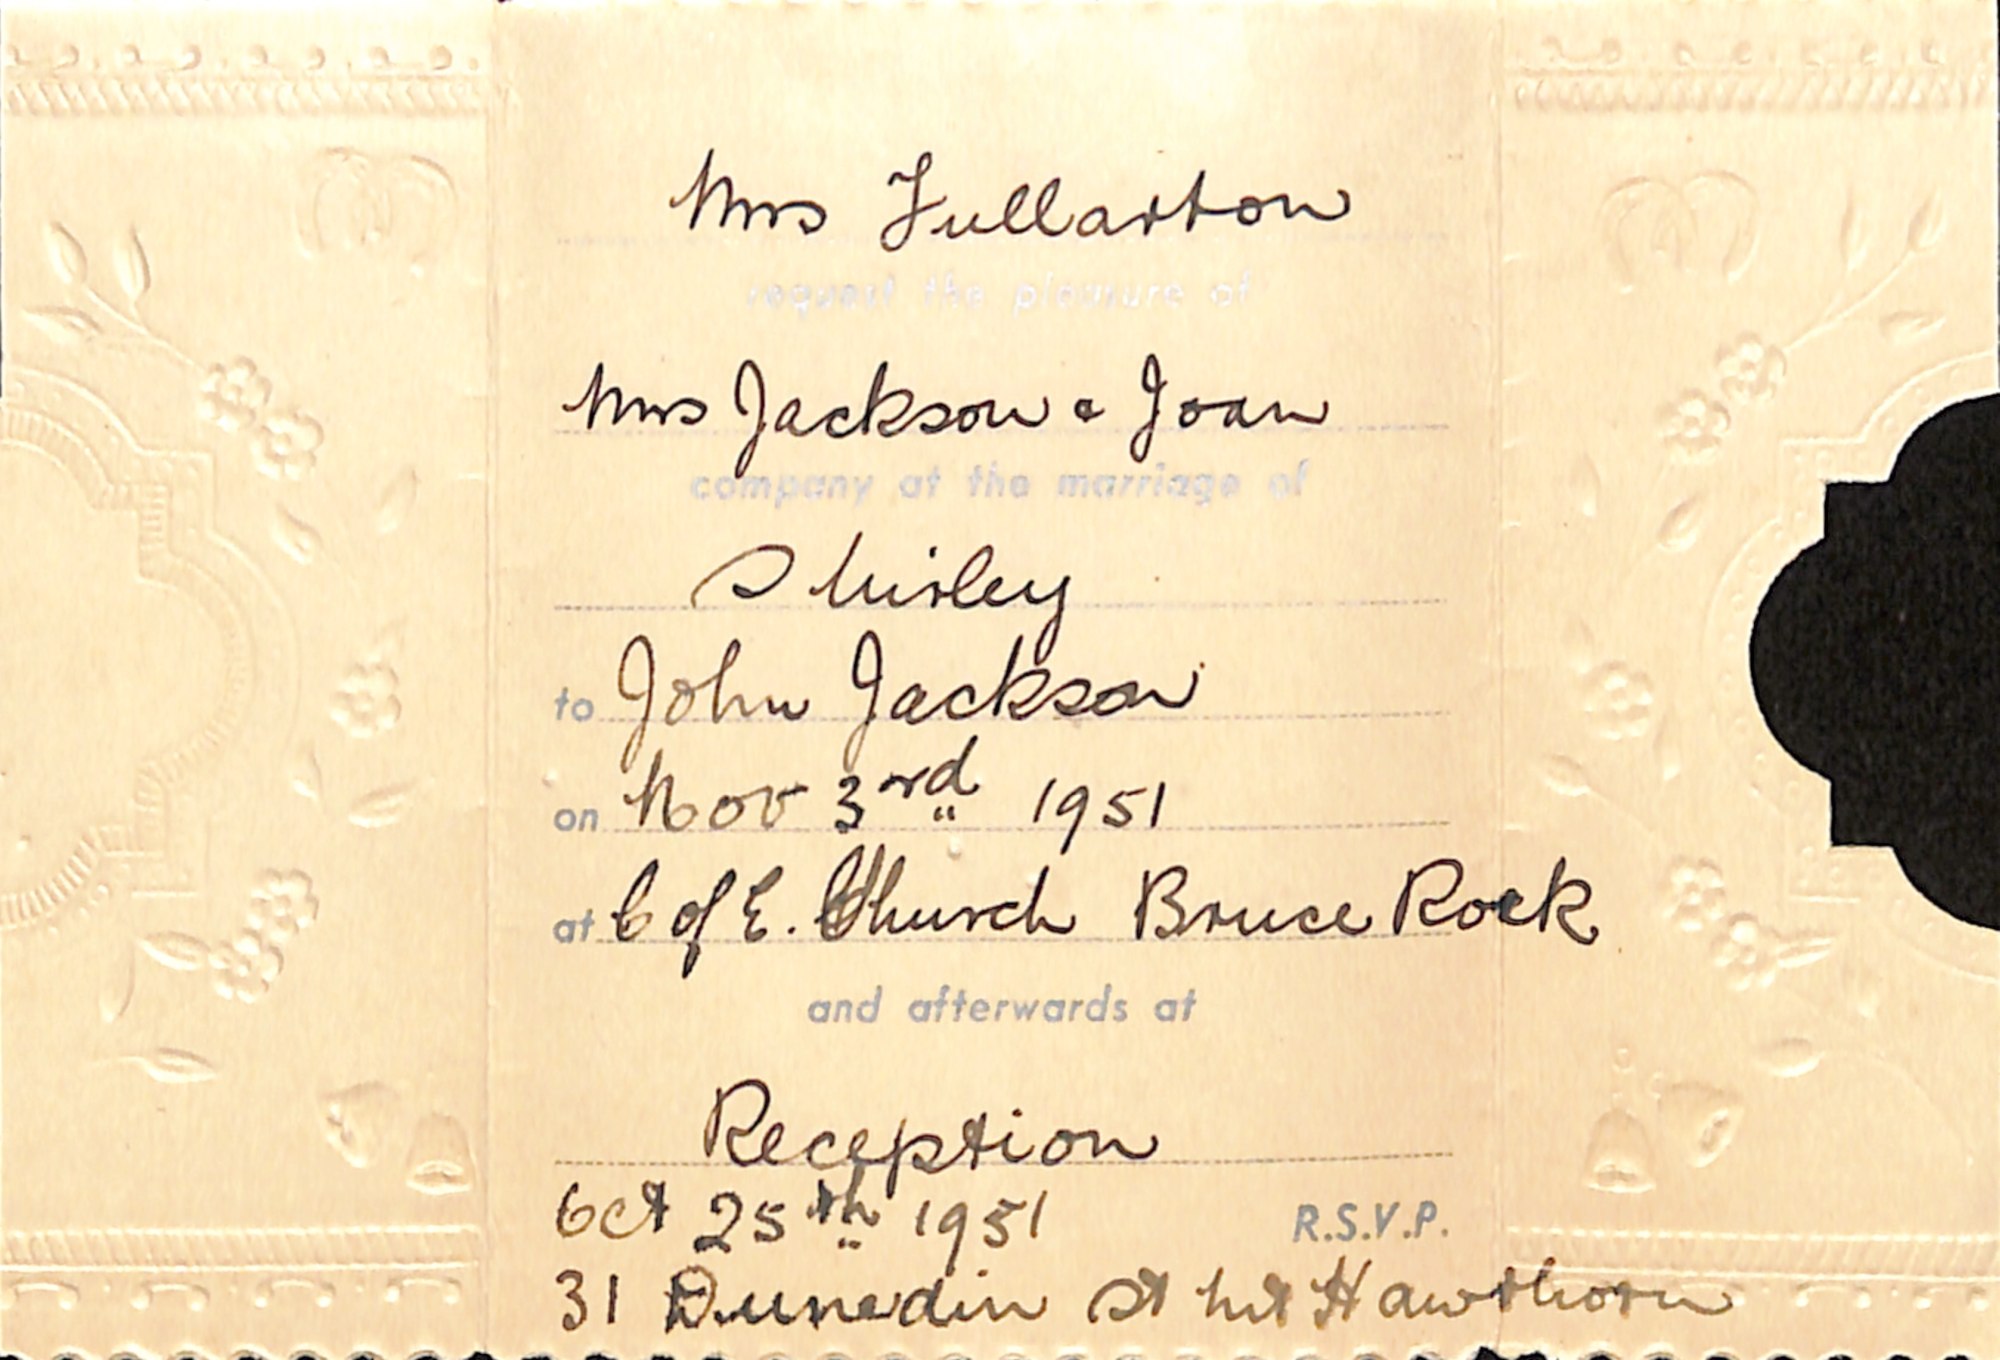 Mrs Fullarton
request the pleasure of
Mrs Jackson & Joan
company at the marriage of
Shirley
to John Jackson
on Nov 3rd 1951
at C of E. Church Bruce Rock
and afterwards at
Reception
Oct 25th 1951 R.S.V.P.
31 Dunedin St Mt Hawthorn